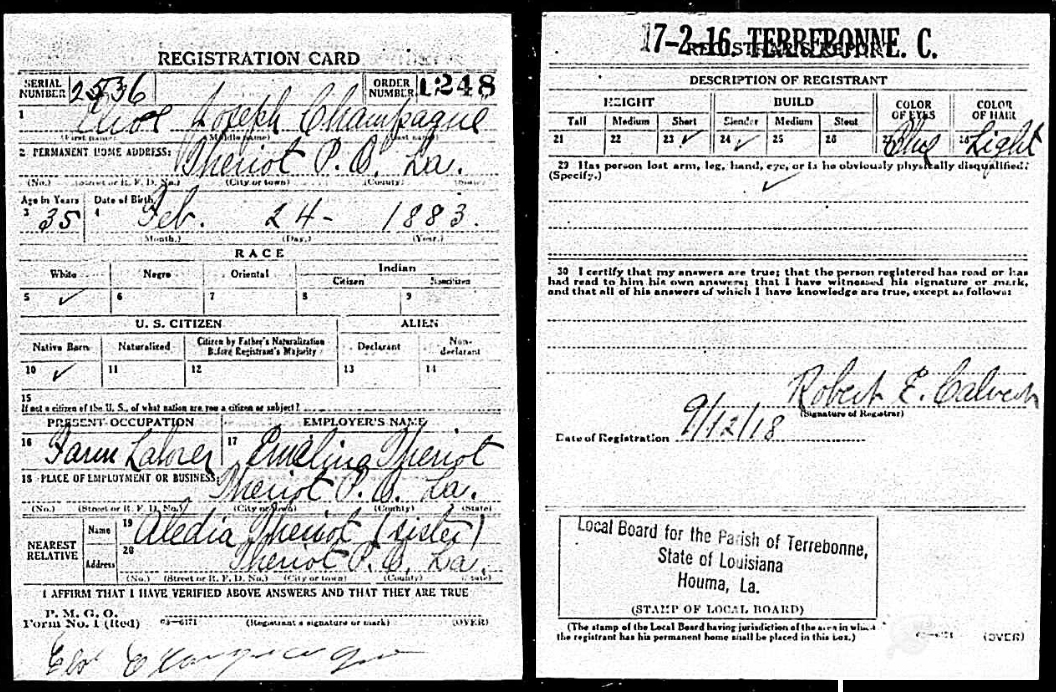 REGISTRATION CARD
SERIAL NUMBER 2536 ORDER NUMBER 1248
1 Joseph Champagne
(First name) (Middle name) (Last name)
2 PERMANENT HOME ADDRESS: Theriot P.O. La.
(No.) (Street or R. F. D. No.) (City or town) (County) (State)
Age in Years Date of Birth
3 35 4 Feb. 24- 1883.
(Month.) (Day.) (Year.)
RACE
White Negro Oriental Indian
Citizen
5 ✓ 6 7 8 9
U. S. CITIZEN ALIEN
Native Born Naturalized Citizen by Father's Naturalization Before Registrant's Majority Declarant Non-declarant
10 ✓ 11 12 13 14
15
If not a citizen of the U. S., of what nation are you a citizen or subject?
PRESENT OCCUPATION EMPLOYER'S NAME
16 Farm Laborer 17 Emelina Theriot
18 PLACE OF EMPLOYMENT OR BUSINESS: Theriot P.O. La.
(No.) (Street or R. F. D. No.) (City or town) (County) (State)
NEAREST RELATIVE Name 19 Aledia Theriot (sister)
Address 20 Theriot P.O. La.
(No.) (Street or R. F. D. No.) (City or town) (County) (State)
I AFFIRM THAT I HAVE VERIFIED ABOVE ANSWERS AND THAT THEY ARE TRUE
P. M. G. O.
Form No. 1 (Red) 03-6171 (Registrant's signature or mark) (OVER)
17-2-16 TERREBONNE. C.
REGISTRAR'S REPORT
DESCRIPTION OF REGISTRANT
HEIGHT BUILD COLOR OF EYES COLOR OF HAIR
Tall Medium Short Slender Medium Stout
21 22 23 ✓ 24 ✓ 25 26 27 Blue 28 Light
29 Has person lost arm, leg, hand, eye, or is he obviously physically disqualified?
(Specify.) ✓
30 I certify that my answers are true; that the person registered has read or has
had read to him his own answers; that I have witnessed his signature or mark,
and that all of his answers of which I have knowledge are true, except as follows:
Robert E. Calvert
(Signature of Registrar)
Date of Registration 9/12/18
Local Board for the Parish of Terrebonne,
State of Louisiana
Houma, La.
(STAMP OF LOCAL BOARD)
(The stamp of the Local Board having jurisdiction of the area in which
the registrant has his permanent home shall be placed in this box.)
03-6171 (OVER)